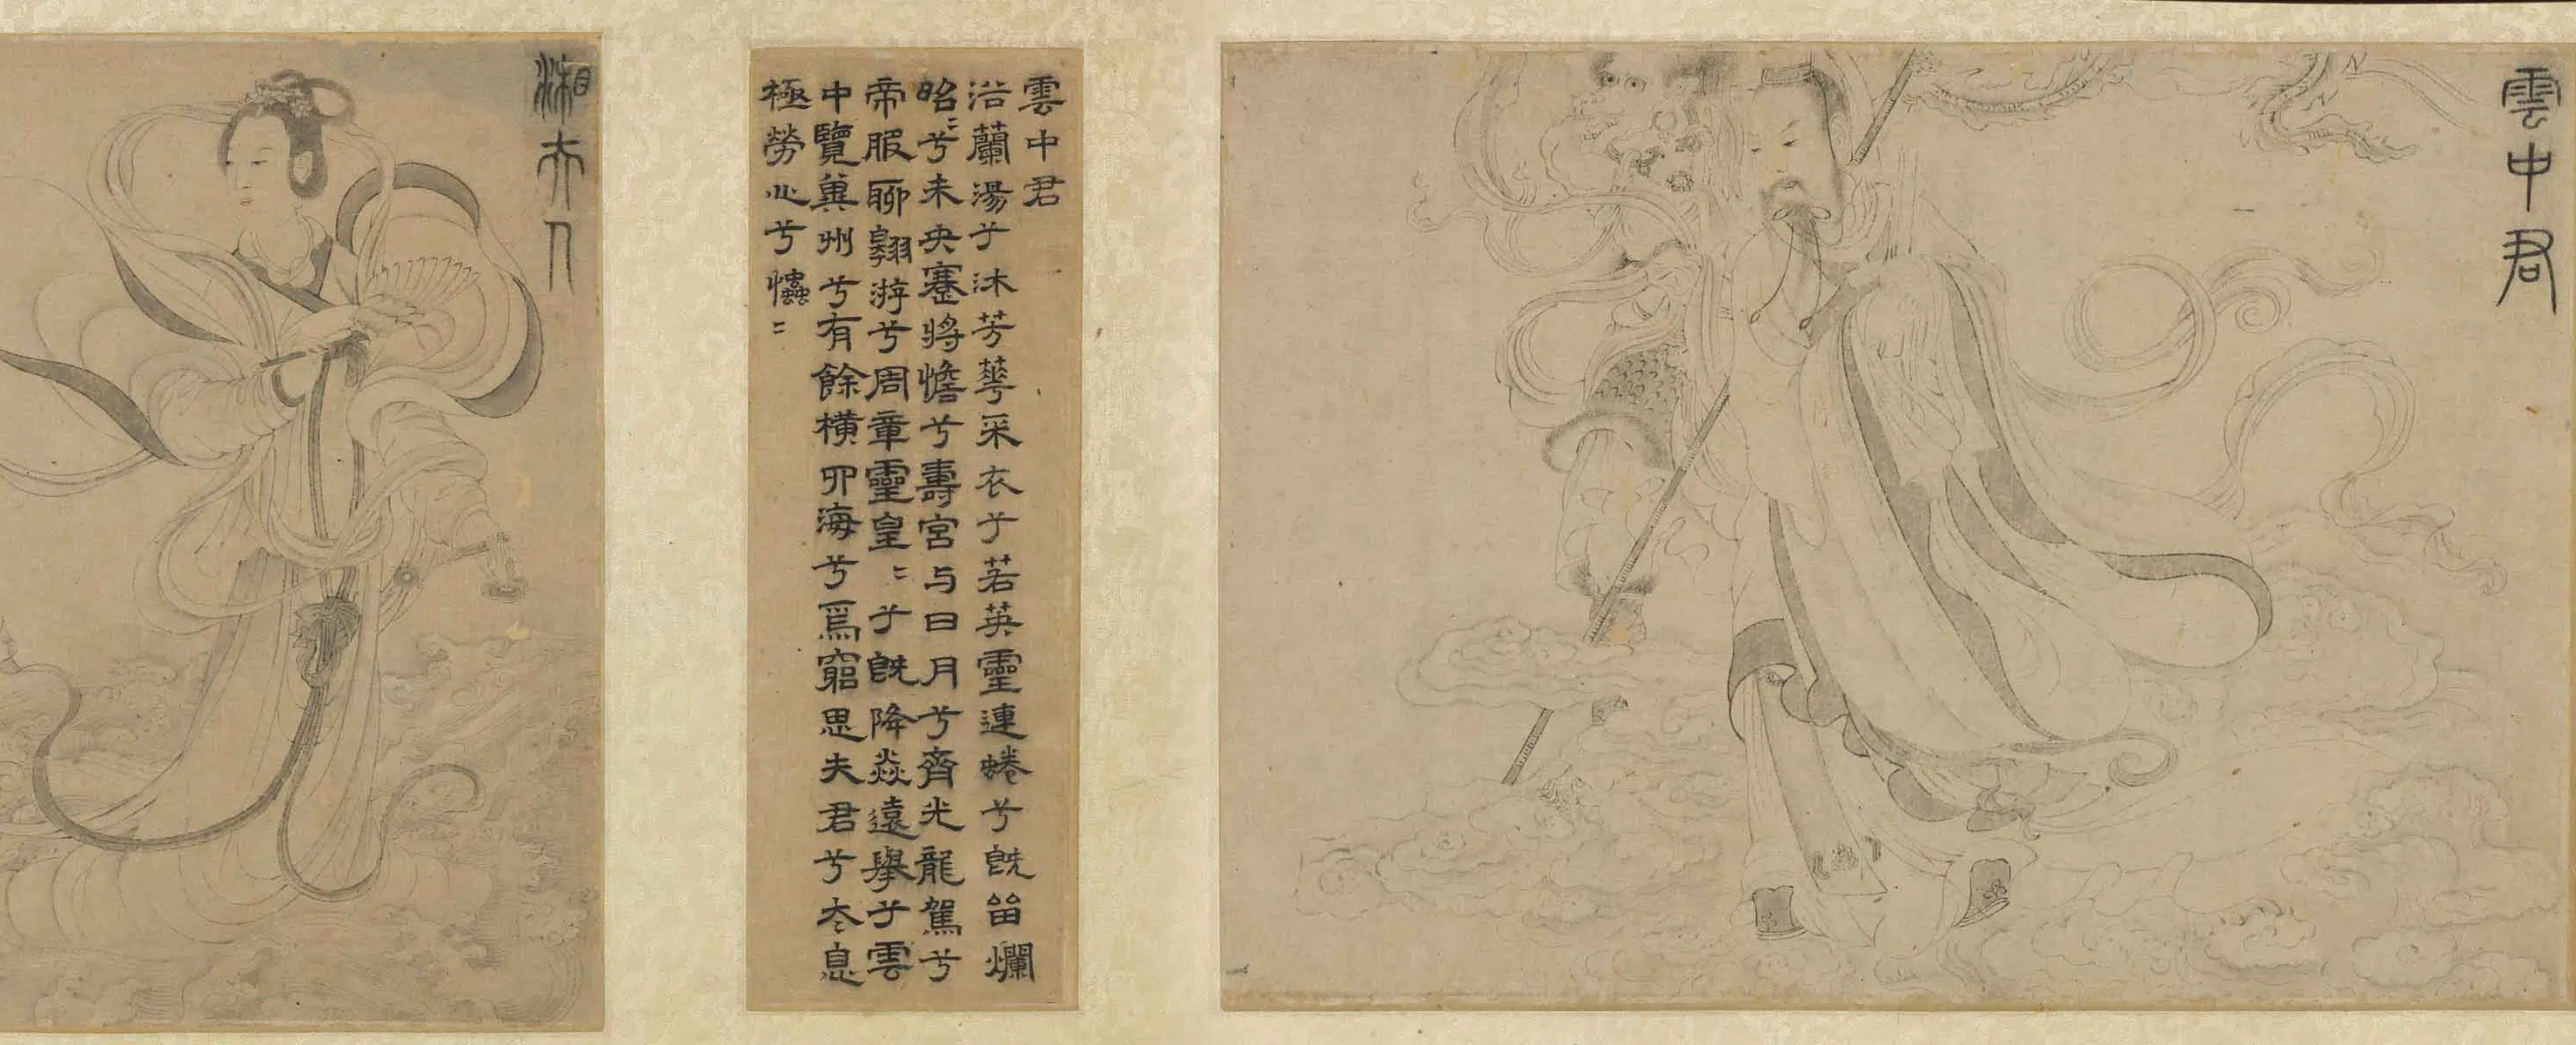 雲中君
雲中君
浴蘭湯兮沐芳華采衣兮若英靈連蜷兮既留爛
昭〻兮未央蹇將憺兮壽宮与日月兮齊光龍駕兮
帝服聊翱游兮周章靈皇〻兮既降猋遠舉兮雲
中覽冀州兮有餘橫四海兮焉窮思夫君兮太息
極勞心兮𢥞〻
湘夫人